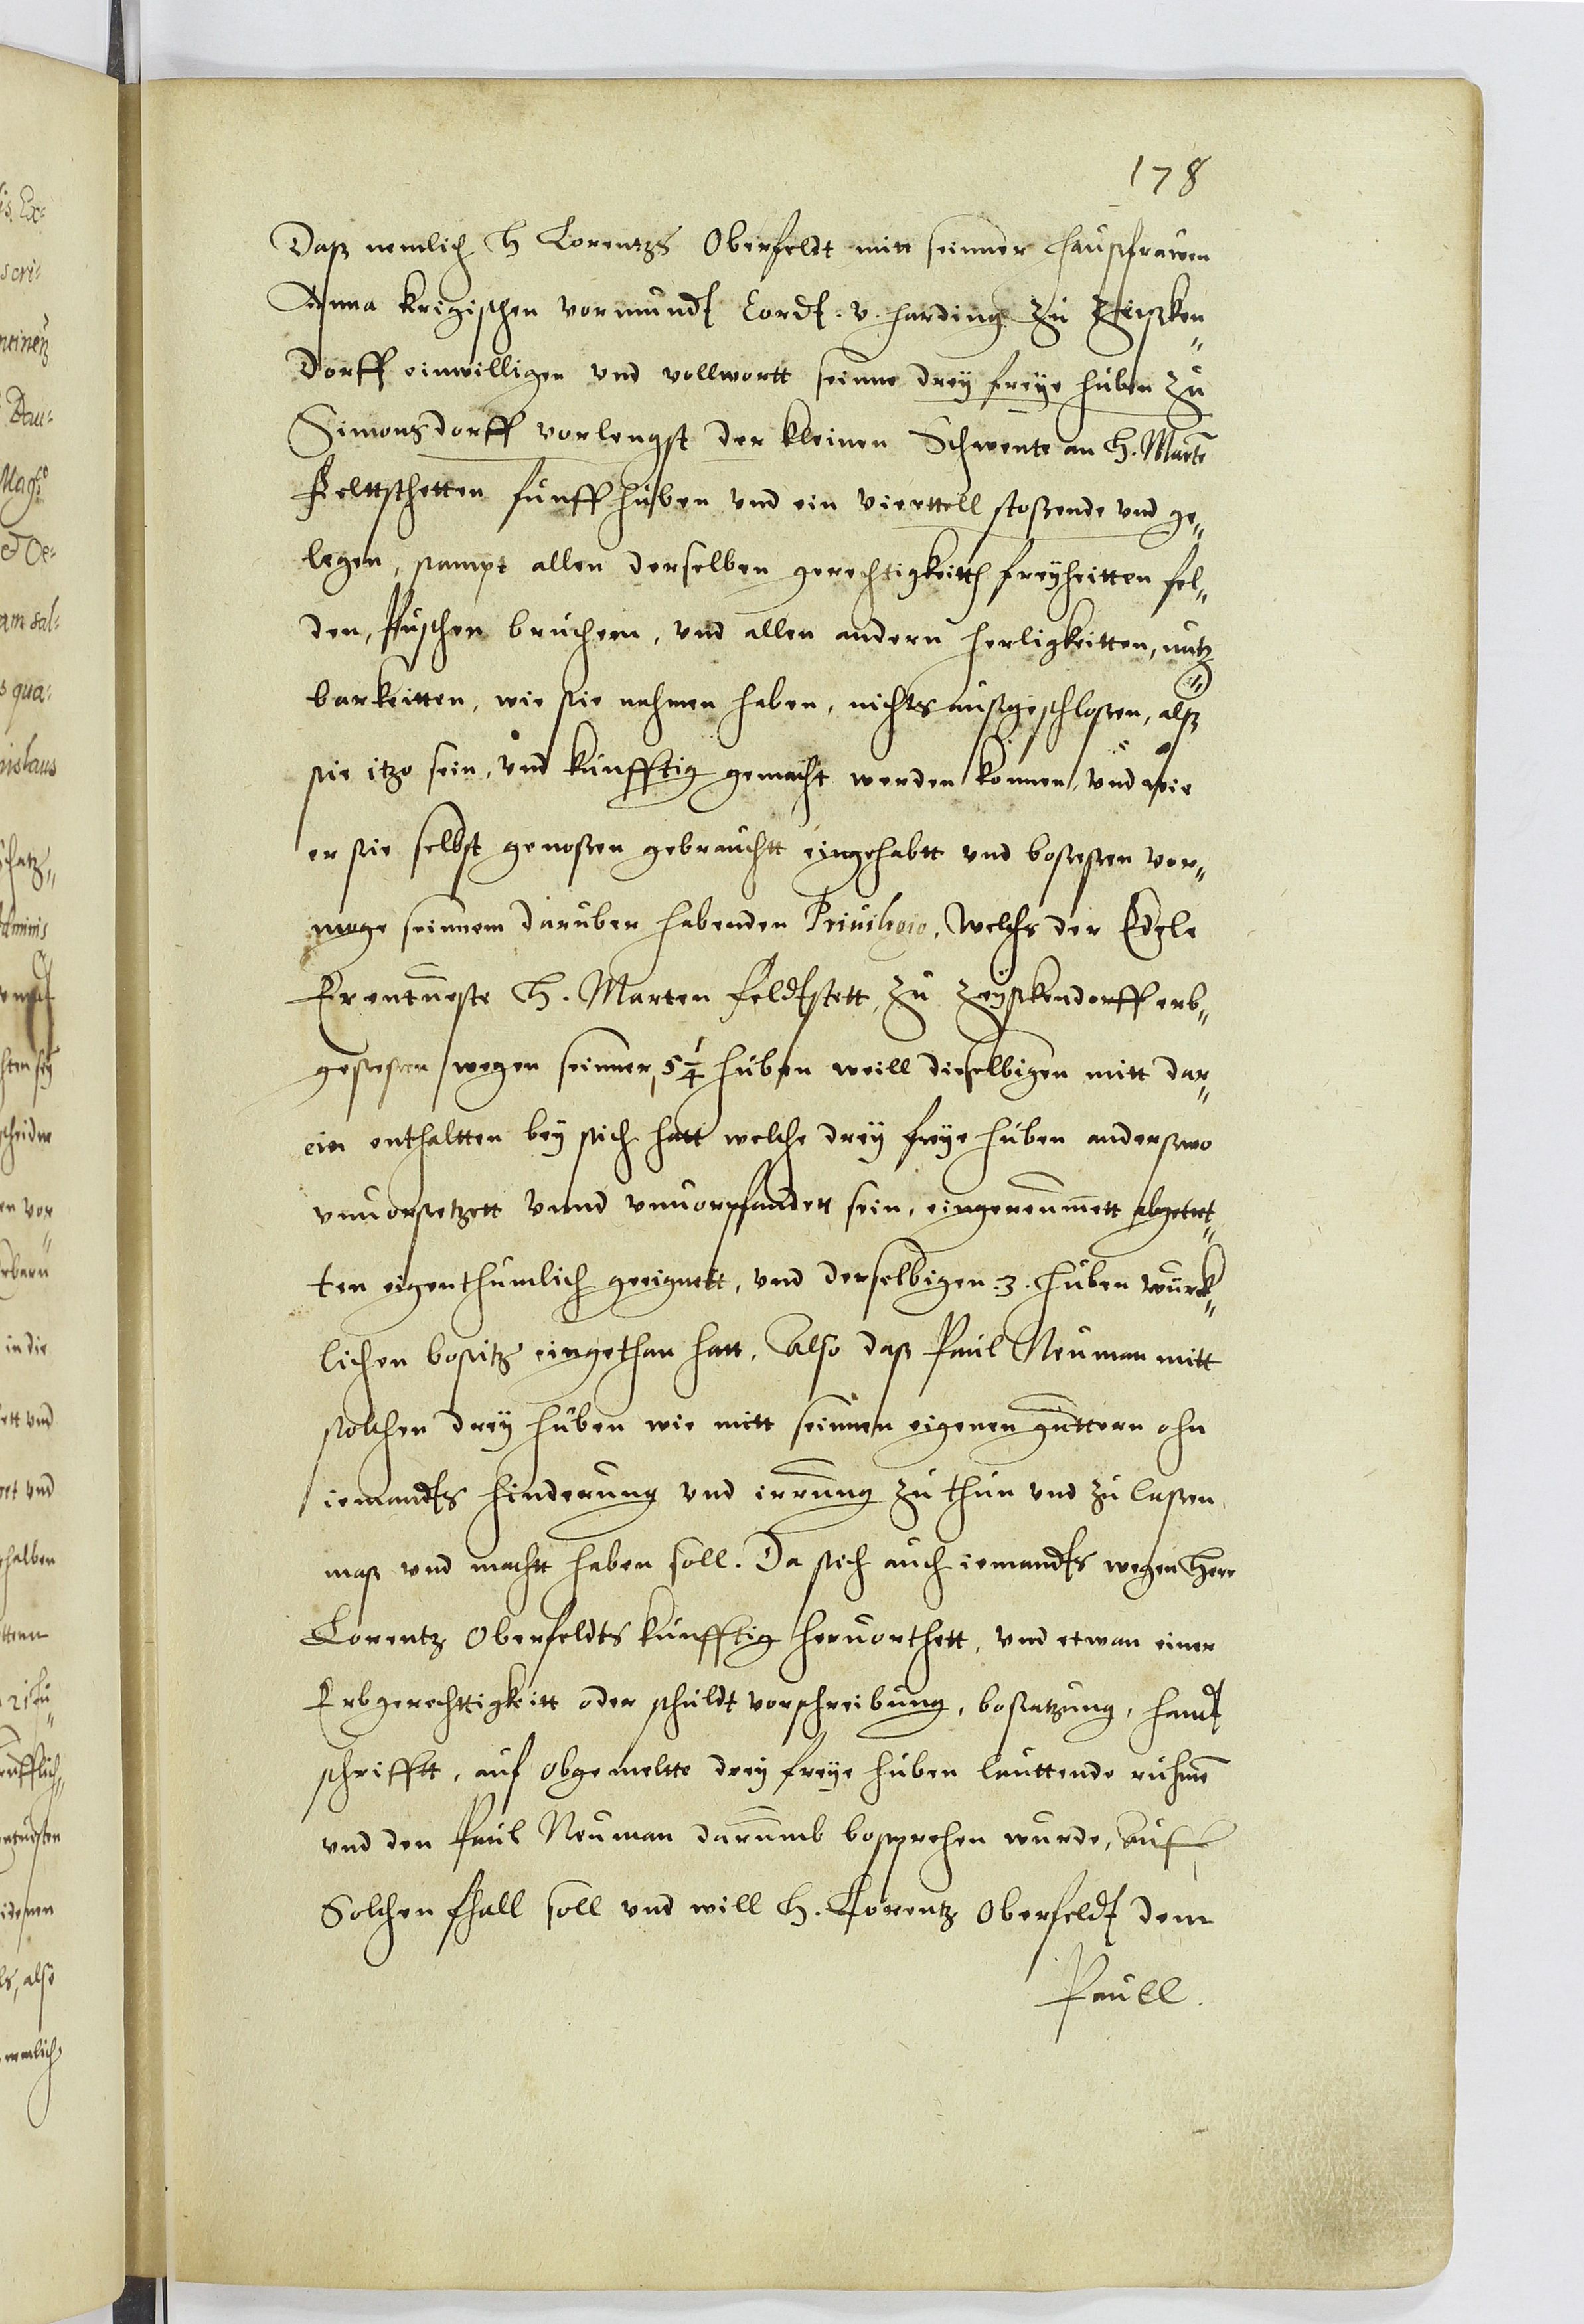 178
Daß nemlich H Lorentzs Oberfeldt mitt seinner haußfrawen
Anna krigischen vormundt Cordt. v. harding zu Zeißken„
dorff einwilligen vnd vollwortt seinne dreÿ freÿe huben zu
Simonsdorff vorlengst der kleinen Schwente an H. Marte
Felttstetten funff huben vnd ein vierttell stossende vnd ge„
legen, sampt allen derselben gerechtigkeitt freÿheitten fel„
den, Puschen bruchern, vnd allen andern herligkeitten, nutz„
barkeitten, wie sie nahmen haben, nichts außgeschlossen, alß
sie itzo sein, vnd kunfftig gemacht werden können, vnd wie
er sie selbst genossen gebrauchtt eingehabtt vnd bosessen vor„
moge seinnem daruber habenden Priuilegio, welchs der Edele
Erentueste H. Marten feldtstett, zu Zeÿskendorff erb„
gesessen wegen seinner 5 1/4 huben weill dieselbigen mitt dar„
ein enthaltten beÿ sich hatt welche dreÿ freÿe huben anderswo
vnuorsetzett vnnd vnuorpfandett sein, eingereumett abgetret„
ten eigenthumlich geeignett, vnd derselbigen .3. huben würck„
lichen bositz eingethan hatt. Also daß Paul Neuman mitt
solchen dreÿ huben wie mitt seinnen eigenen guttern ohn
iemandts hinderung vnd irrung zu thun vnd zu lassen,
maß vnd machtt haben soll. Da sich auch iemandts wegen Herr
Lorentz Oberfeldts kunfftig heruorthett, vnd etwan einer
Erbgerechttigkeitt oder schuldt vorschreibung, bosatzung, handt
schrifftt, auf obgemeltte dreÿ freÿe huben lauttende ruhme
vnd den Paul Neuman darumb bosprechen wurde, auf
Solchen fhall soll vnd will H. Lorentz Oberfeldt dem
Paull.